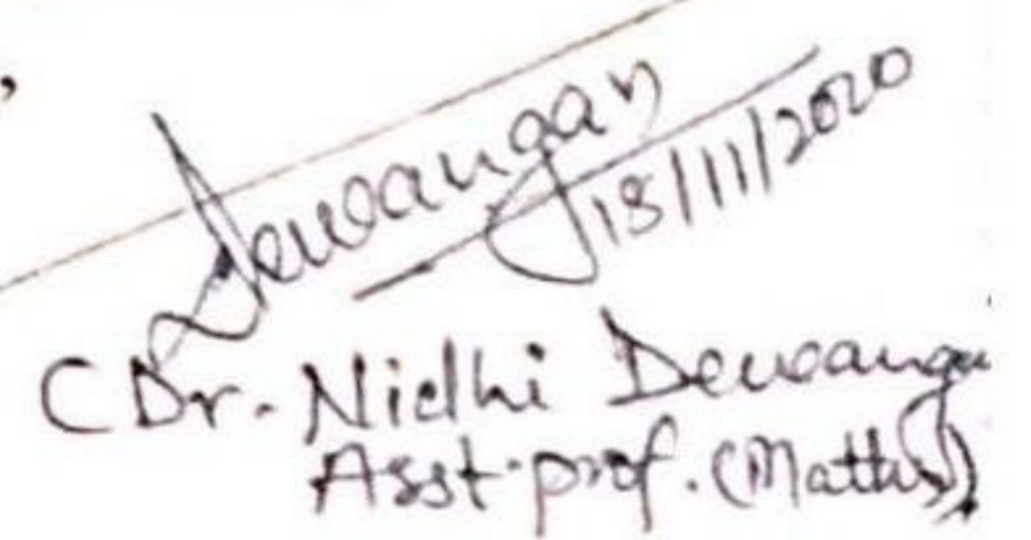 Dewangan
18/11/2020
(Dr. Nidhi Dewangan
Asst. prof. (Maths))